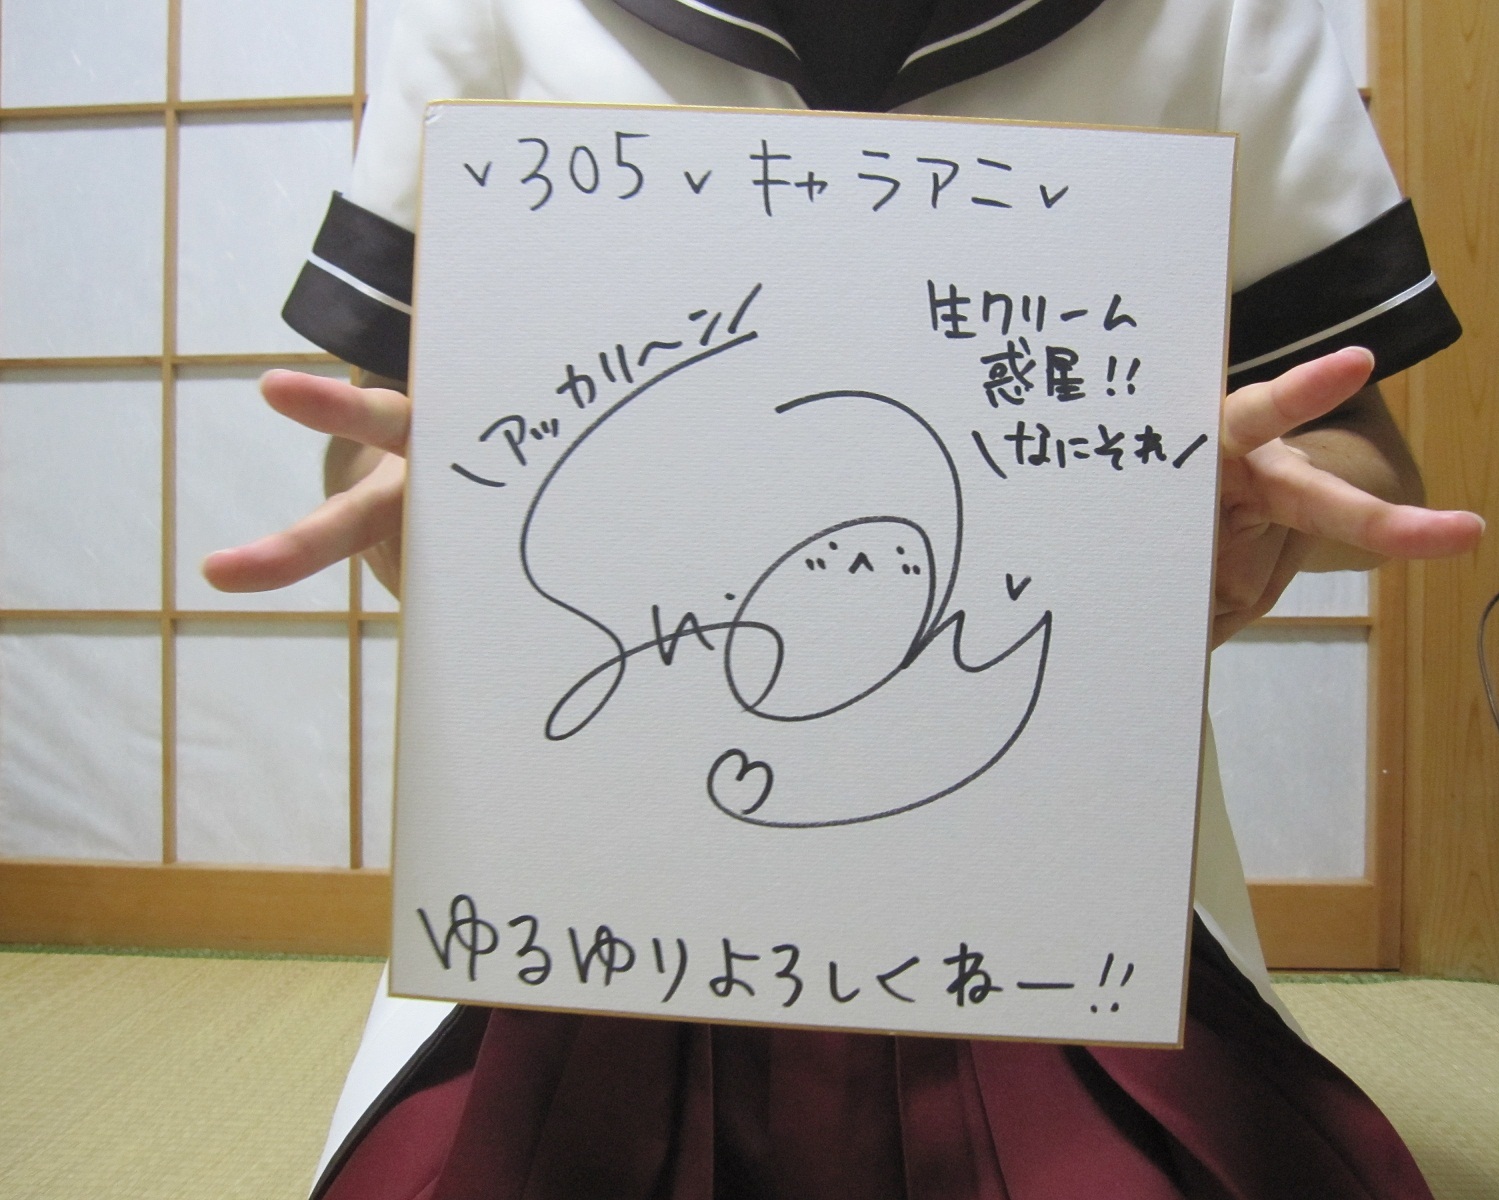 305 キャラアニ
\アッカリ～ン/
生クリーム
惑星!!
\なにそれ/
ゆるゆりよろしくねー!!